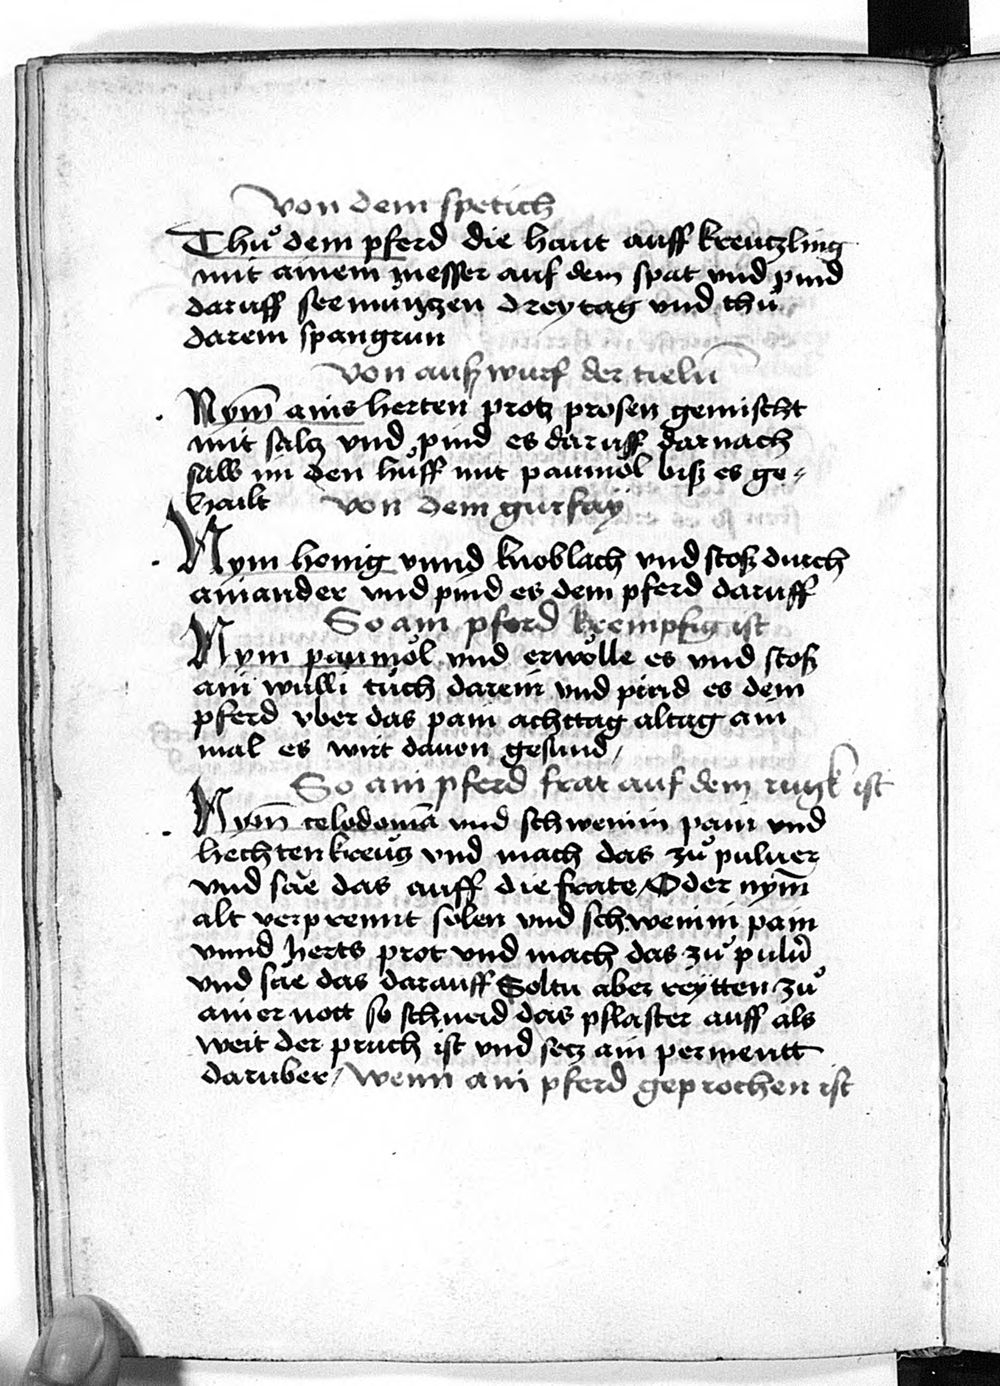 von dem spetich
Thuͦ dem pferd die haut auff kreutzling
mit ainem messer auf dem spat vnd pind
daruff seemuntzen drey tag vnd thuͦ
darein spangrun
von außwurf der tieln̄
Nym̄ ains herten protz prosen gemischt
mit saltz vnd pind es daruff darnach
salb im den huͦff mit paumöl biß es ge⸗
hailt von dem gurfay
Nym honig vnnd knoblach vnd stoß durch
ainander vnd pind es dem pferd daruff
So ain pferd krempfig ist
Nym paumöl vnd erwölle es vnd stoß
ain wulli tuͦch darein vnd pind es dem
pferd vber das pain achttag altag ain
mal es wirt dauon gesund /
So ain pferd frat auf dem rugk ist
Nym̄ celodomā vnd schweinin pain vnd
hechten kreutz vnd mach das zuͦ puluer
vnd säe das auff die frate / Oder nym̄
alt verprennt solen vnd schweinin pain
vnnd herts prot vnd mach das zuͦ pulu̅
vnd säe das darauff Soltu aber reytten zuͦ
ainer nott so schneid das pflaster auff als
weit der pruch ist vnd setz ain permentt
daruber / wenn ain pferd geprochen ist